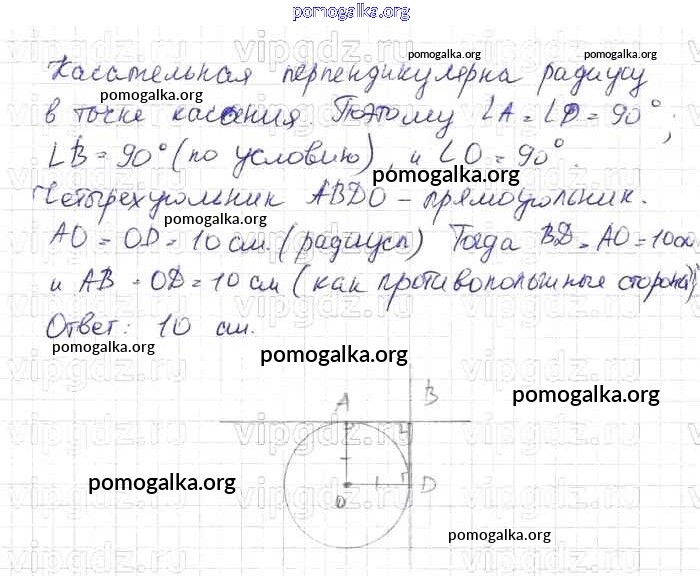 pomogalka.org
Касательная перпендикулярна радиусу
pomogalka.org
pomogalka.org
pomogalka.org
в точке касания. Поэтому ∠A = ∠D = 90°;
∠B = 90° (по условию) и ∠O = 90°.
pomogalka.org
Четырехугольник ABDO - прямоугольник.
pomogalka.org
AO = OD = 10 см. (радиусы) Тогда BD = AO = 10 см
и AB = OD = 10 см (как противоположные стороны)
Ответ: 10 см.
pomogalka.org
pomogalka.org
A B
pomogalka.org
pomogalka.org
O D
pomogalka.org
vipgdz.ru